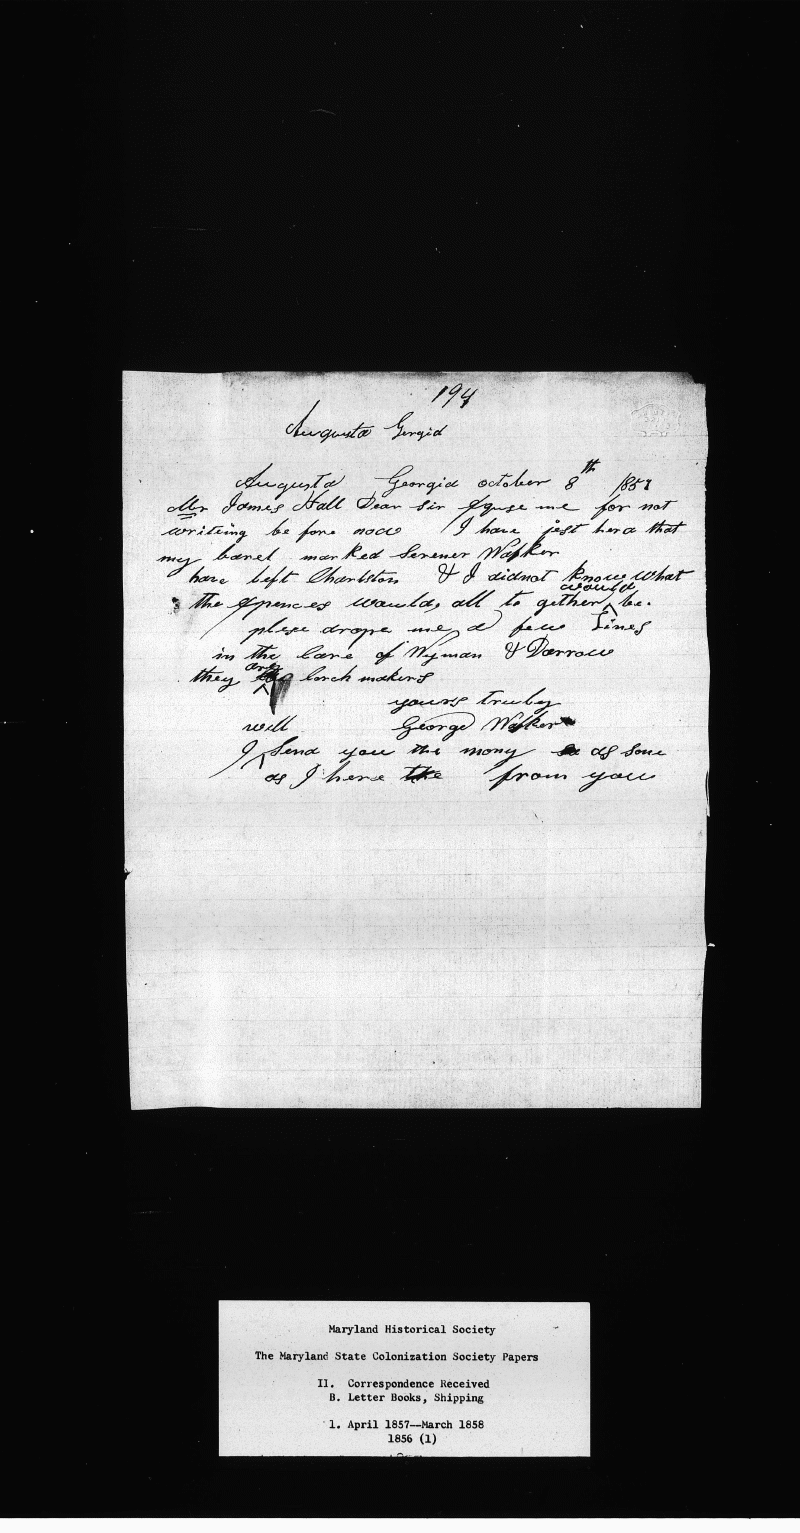 194
Augusta Gergia
Augusta Georgia october 8th 1857
Mr James Hall Dear sir Exquse me for not
writeing be fore now I have jest herd that
my barel marked Serener Walker
have left Charlston & I didnot know what
the Expences would, all to gether would be.
plese drope me a few Lines
in the Care of Wyman & Darrow
they are Coach makers
yours truly
George Walker
I will Send you the mony as sone
as I here from you
Maryland Historical Society
The Maryland State Colonization Society Papers
II. Correspondence Received
B. Letter Books, Shipping
1. April 1857--March 1858
1856 (1)